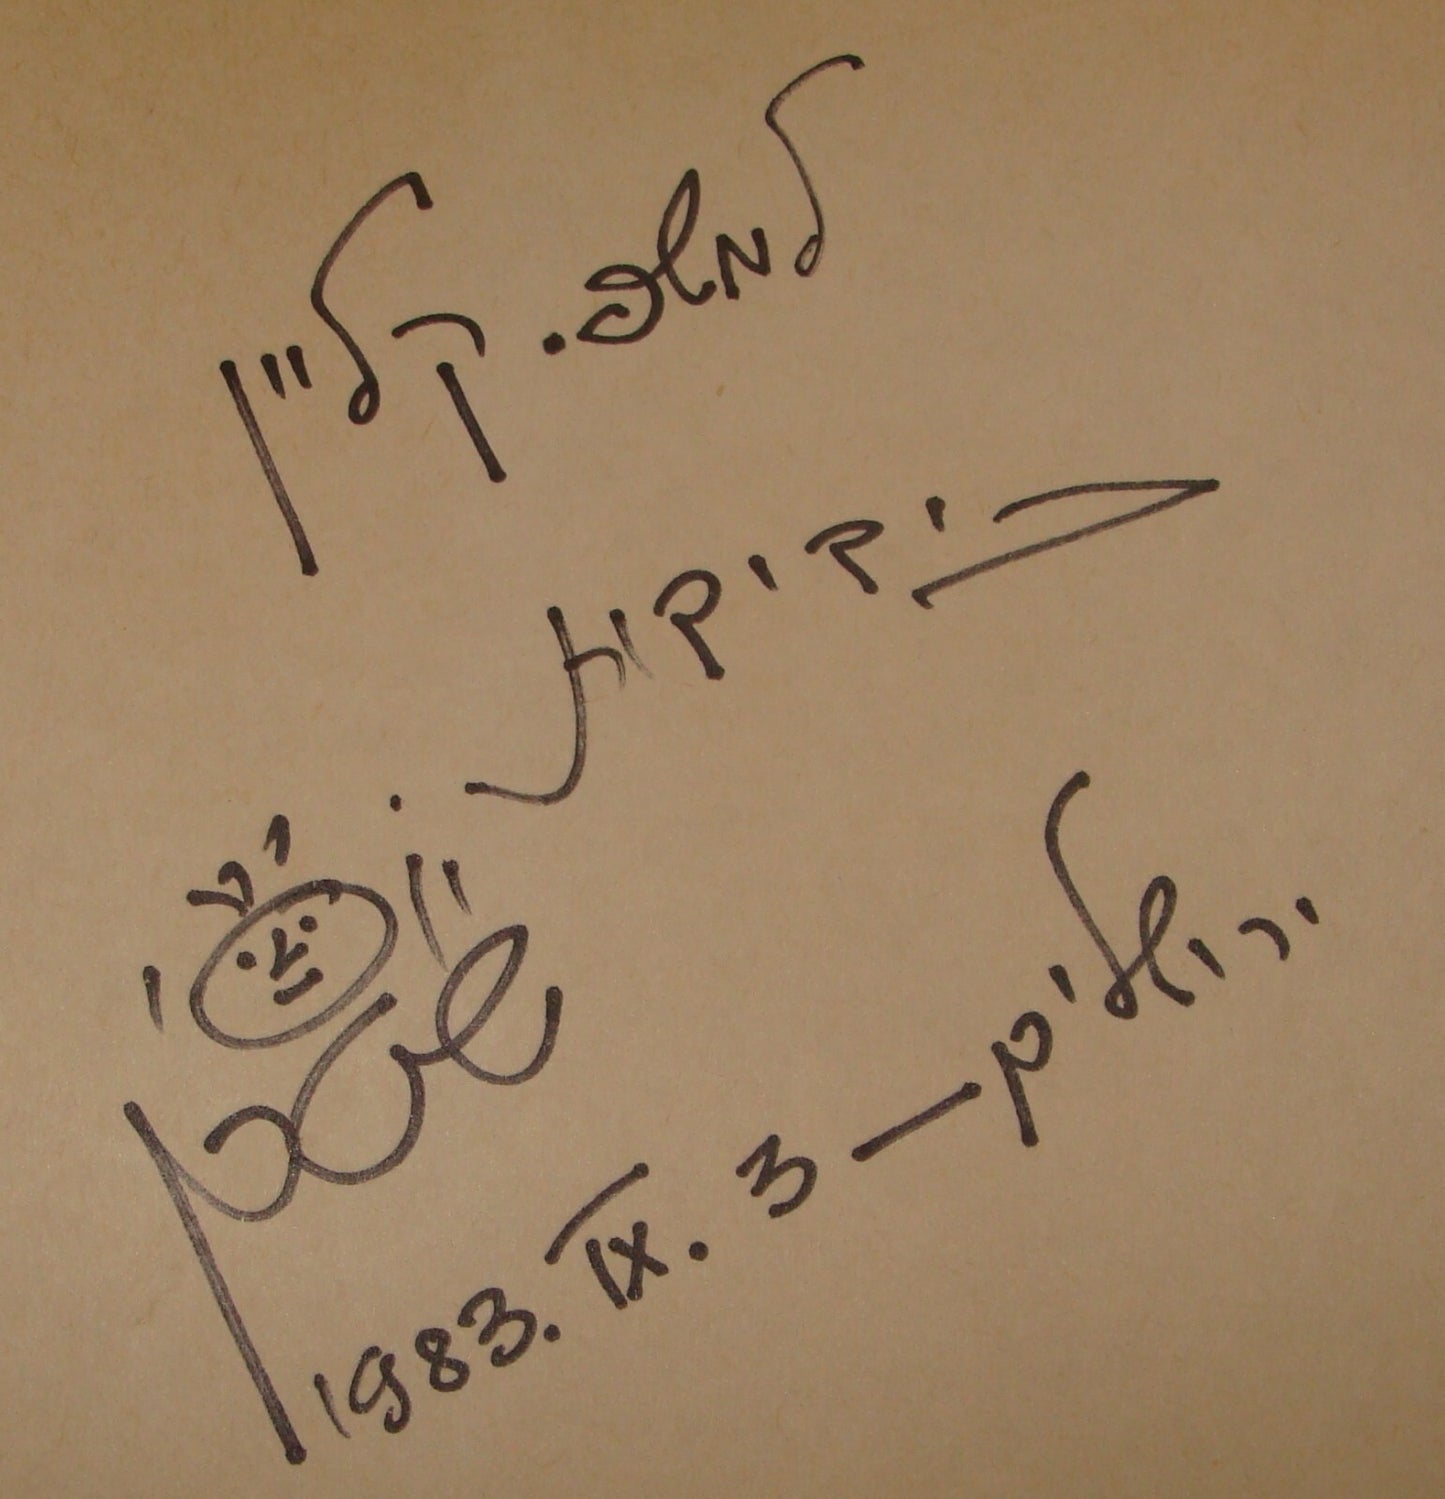 למשפ. קליין
בידידות.
ירושלים — 3. IX. 1983